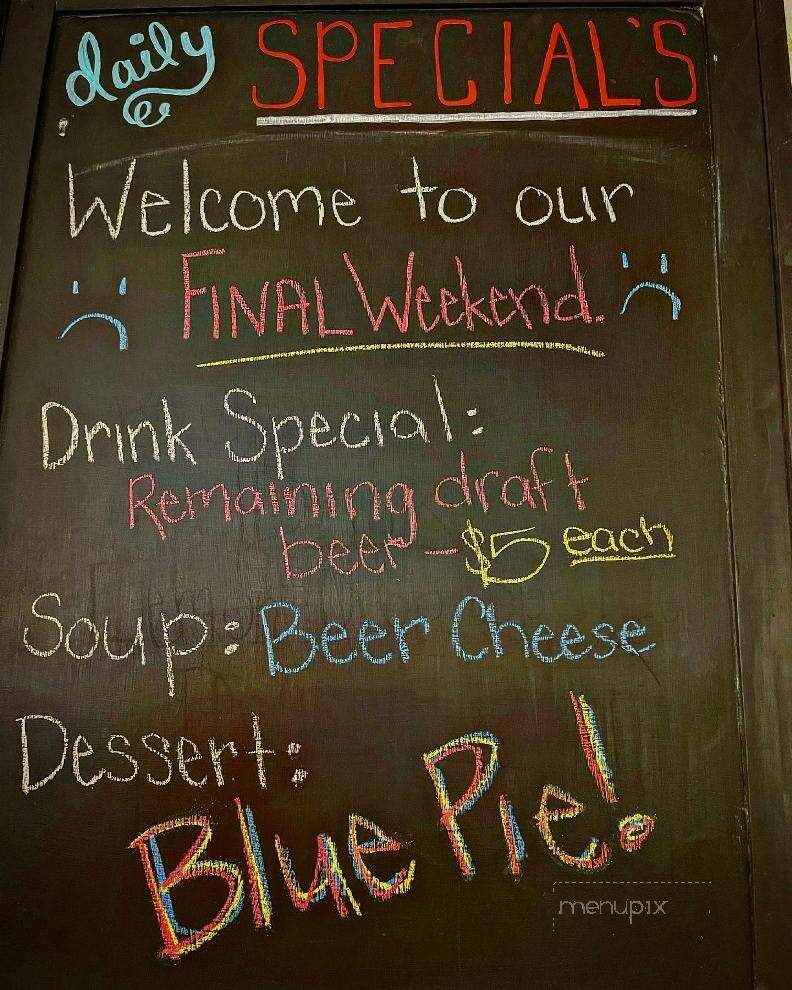 daily SPECIAL'S
Welcome to our
FINAL Weekend.
Drink Special:
Remaining draft
beer - $5 each
Soup: Beer Cheese
Dessert:
Blue Pie!
menupix